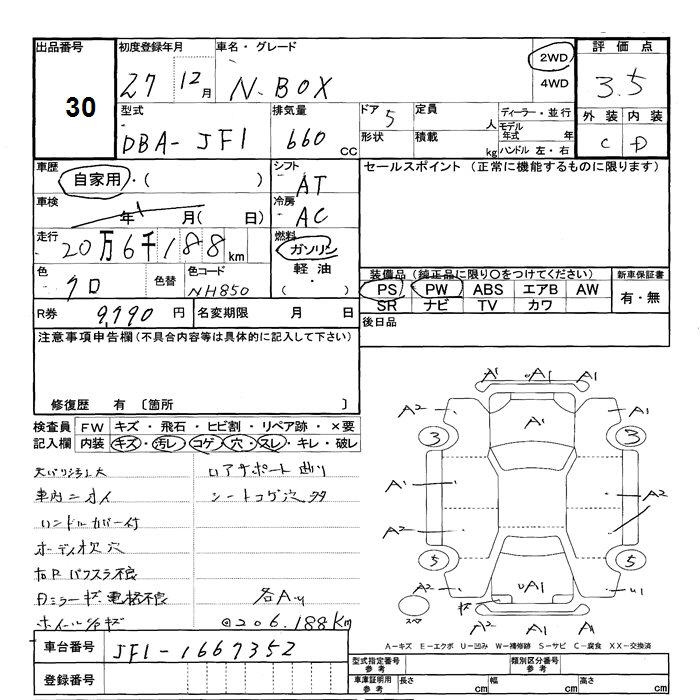 出品番号
30
初度登録年月
27 12月
車名・グレード
N-BOX
2WD
4WD
評価点
3.5
外装 内装
C D
型式
DBA-JF1
排気量
660 CC
ドア 5
形状
定員 人
積載 kg
ディーラー・並行
モデル年式 年
ハンドル 左・右
車歴
自家用・( )
シフト
AT
セールスポイント (正常に機能するものに限ります)
車検
年 月( 日)
冷房
AC
走行
20万6千188km
燃料
ガソリン
軽油
・( )
色
クロ
色替
色コード
NH850
装備品 (純正品に限り○をつけてください)
PS PW ABS エアB AW
SR ナビ TV カワ
新車保証書
有・無
R券 9,790円
名変期限 月 日
後日品
注意事項申告欄(不具合内容等は具体的に記入して下さい)
修復歴 有 〔箇所 〕
検査員記入欄
FW キズ・飛石・ヒビ割・リペア跡・×要
内装 キズ・汚レ・コゲ・穴・スレ・キレ・破レ
シートコゲ穴多
車内ニオイ
ハンドルカバー付
オーディオ欠 穴
各AU
ホイールキズ
206,188Km
車台番号
JF1-1667352
登録番号
A1 UA1 A1
A2 A1 A1
3 3
A1 A2
A2
5 5
A2 UA1 U1
キズ
A2 A1 A1
A-キズ E-エクボ U-凹み W-補修跡 S-サビ C-腐食 XX-交換済
型式指定番号 参考
類別区分番号 参考
車庫証明用 参考
長さ cm 幅 cm 高さ cm